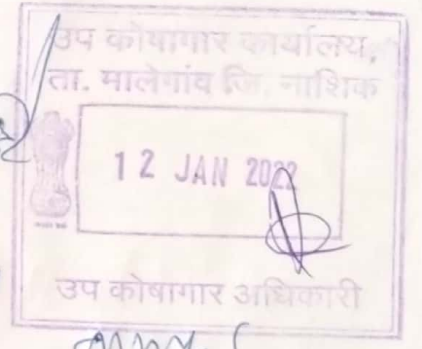 उप कोषागार कार्यालय,
ता. मालेगांव जि. नाशिक
12 JAN 2022
उप कोषागार अधिकारी